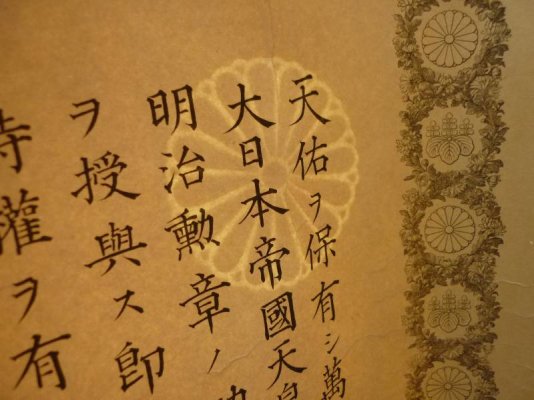 天佑ヲ保有シ萬
大日本帝國天皇
明治勳章ノ
ヲ授與ス即
特權ヲ有